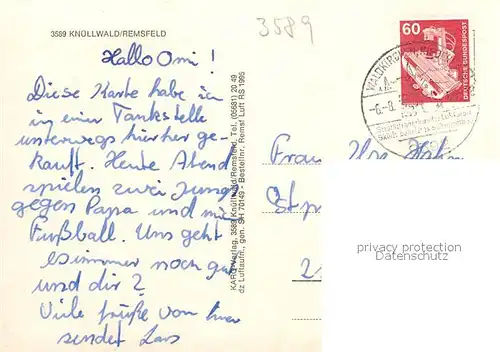 3589 KNÜLLWALD/REMSFELD
3589
Hallo Omi!
Diese Karte habe ich
in einer Tankstelle
unterwegs hierher ge-
kauft. Heute Abend
spielen zwei Jungs
gegen Papa und mich
Fußball. Uns geht
es immer noch gut
und dir?
Viele Grüße von hier
sendet Lars
KARO-Verlag, 3589 Knüllwald/Remsfeld, Tel. (05681) 20 49
dz Luftaufn., gen. SH 70149 - Bestellnr. Remsf Luft RS 1995
60
DEUTSCHE BUNDESPOST
WALDKIRCH
-6.-8.
Frau Ilse
privacy protection
Datenschutz